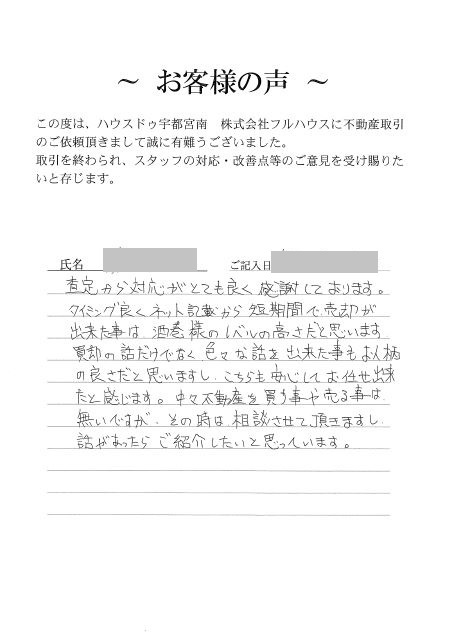 ～ お客様の声 ～
この度は、ハウスドゥ宇都宮南　株式会社フルハウスに不動産取引
のご依頼頂きまして誠に有難うございました。
取引を終わられ、スタッフの対応・改善点等のご意見を受け賜りた
いと存じます。
氏名　ご記入日
査定から対応がとても良く感謝しております。
タイミング良くネット記載から短期間で売却が
出来た事は酒巻様のレベルの高さだと思います
買却の話だけでなく色々な話を出来た事もお人柄
の良さだと思いますし、こちらも安心してお任せ出来
たと感じます。中々不動産を買う事や売る事は
無いですが、その時は相談させて頂きますし
話があったらご紹介したいと思っています。